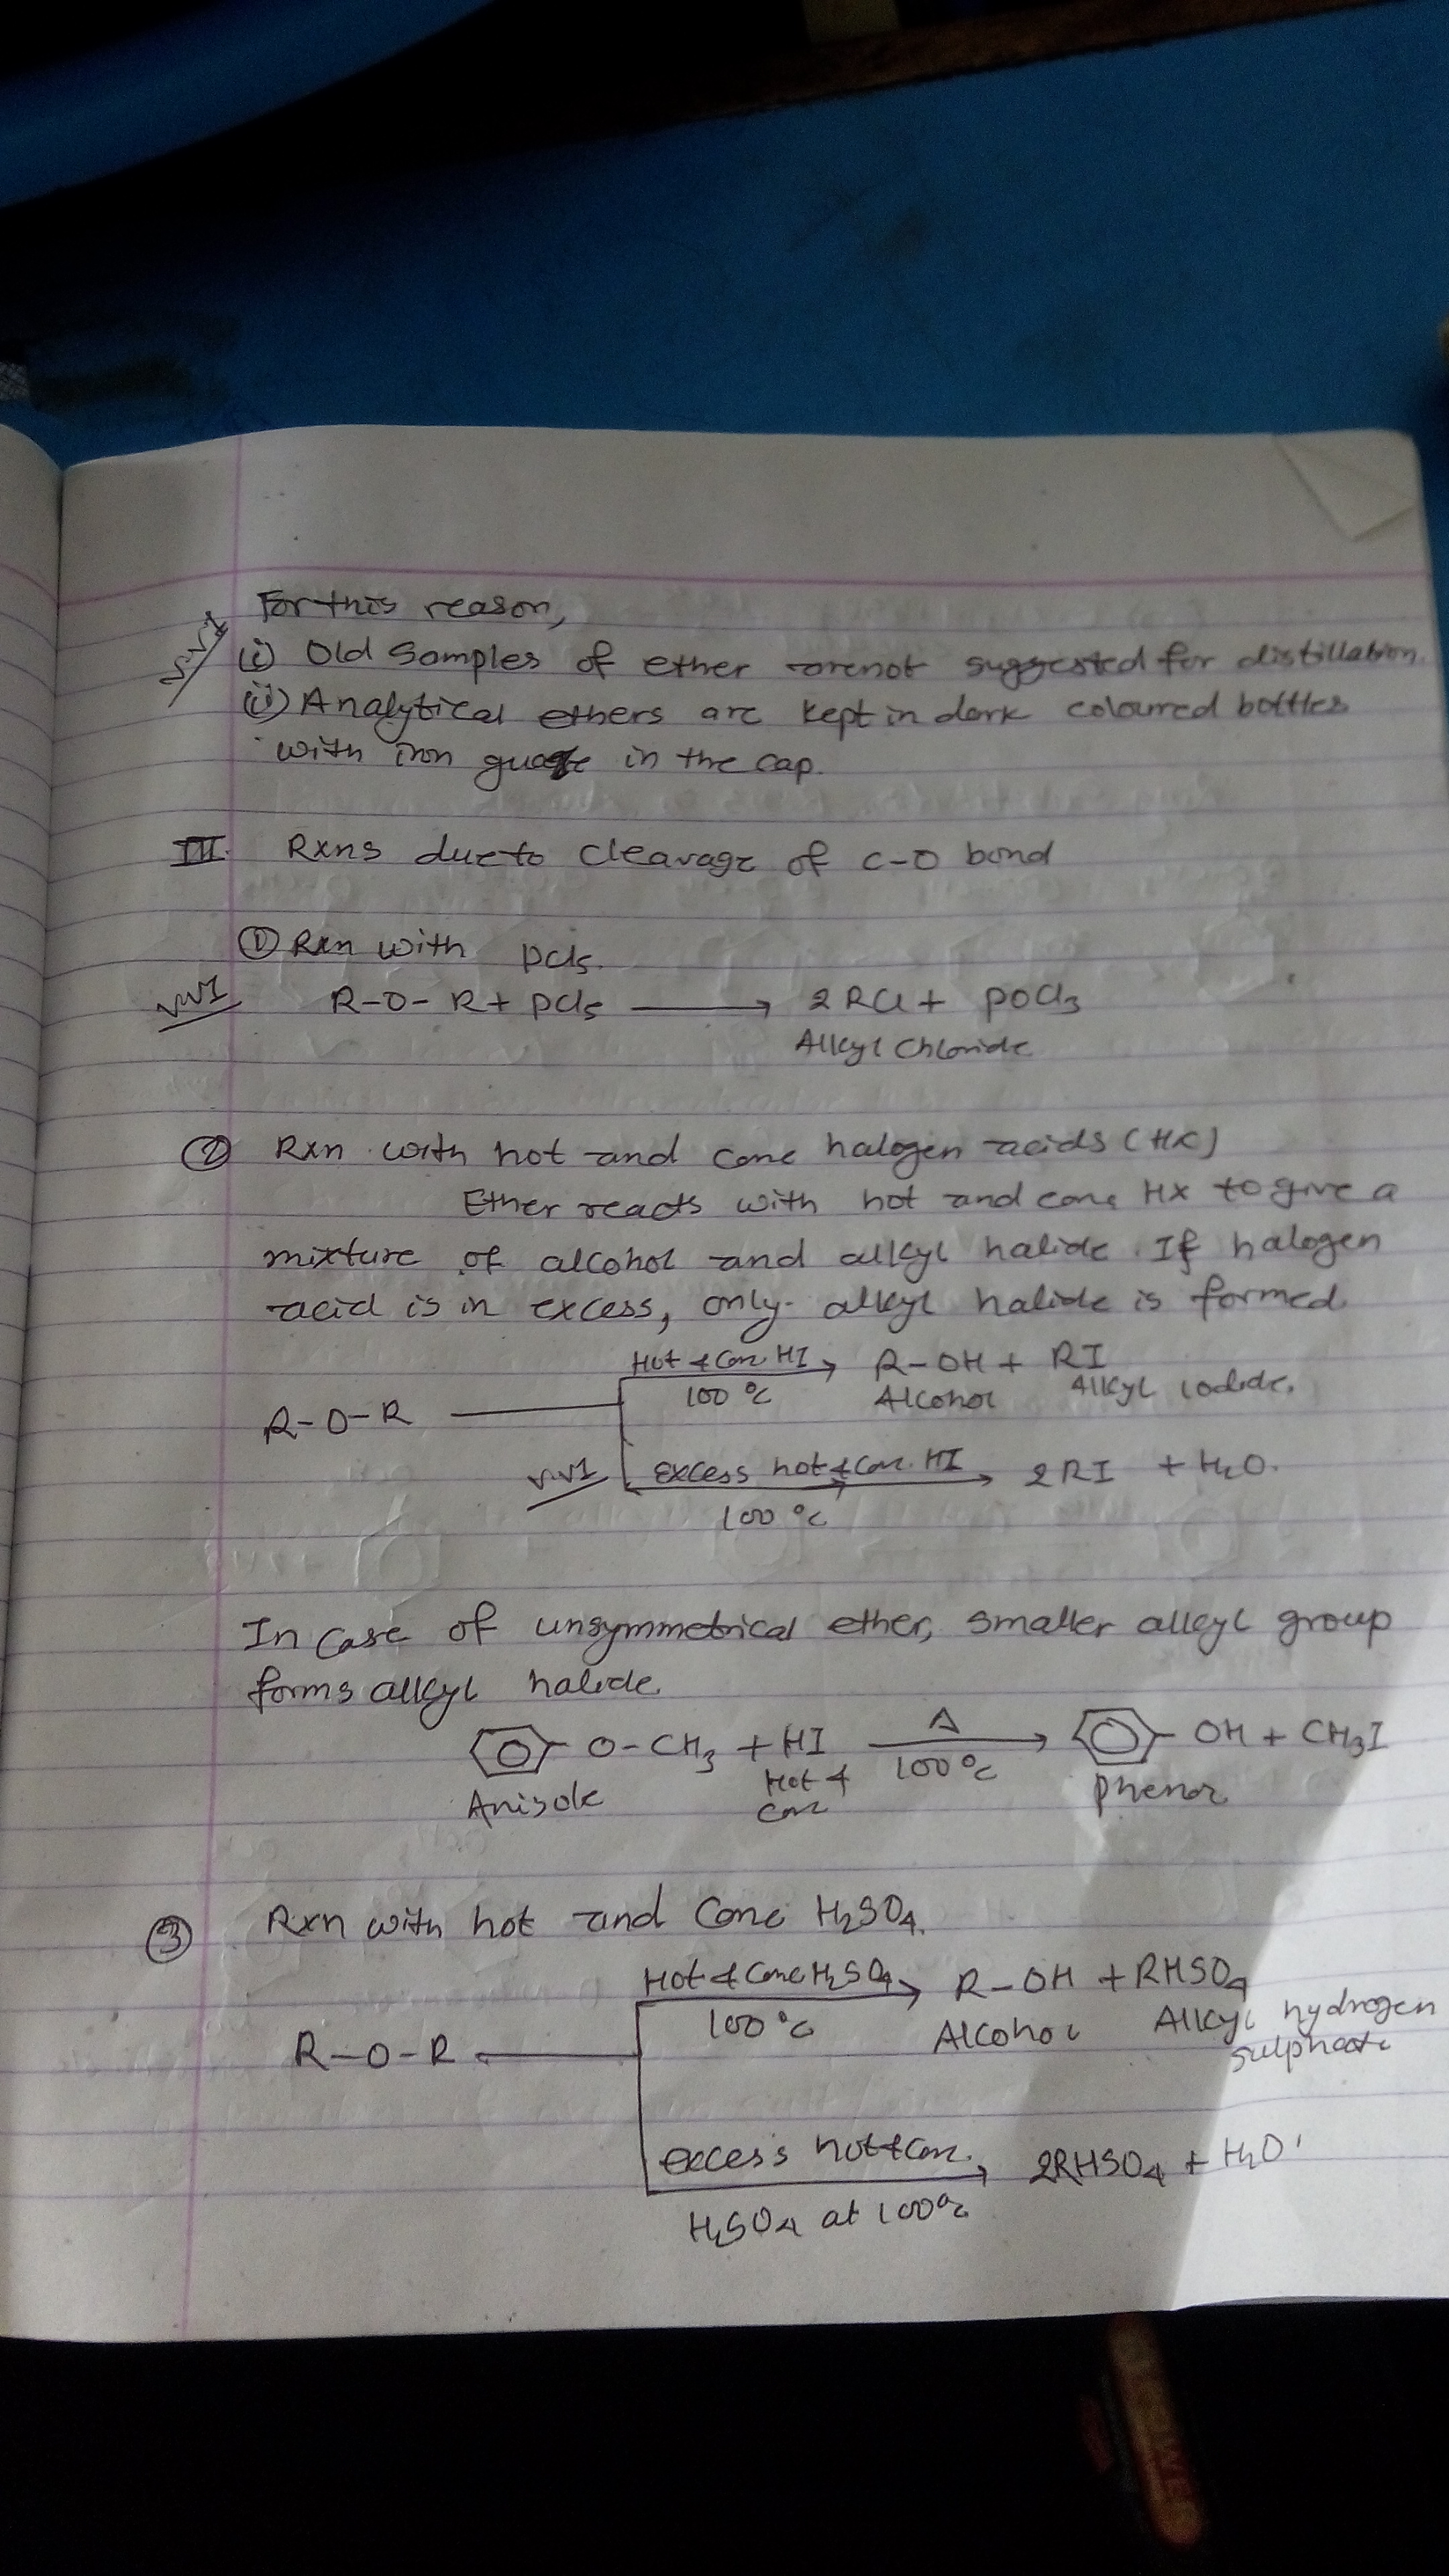 For this reason,
V.V.I
(i) Old Samples of ether are not suggested for distillation.
(ii) Analytical ethers are kept in dark coloured bottles
with iron in the cap.
III. Rxns due to cleavage of C-O bond
① Rxn with PCl5.
VVI R-O-R + PCl5 ⟶ 2RCl + POCl3
Alkyl Chloride
② Rxn with hot and conc halogen acids (HX)
Ether reacts with hot and conc HX to give a
mixture of alcohol and alkyl halide. If halogen
acid is in excess, only alkyl halide is formed.
Hot & Conc HI → R-OH + RI
100 °C Alcohol Alkyl iodide.
R-O-R
VVI excess hot & conc. HI → 2RI + H2O.
100 °C
In case of unsymmetrical ether, smaller alkyl group
forms alkyl halide.
O-CH3 + HI Δ → OH + CH3I
Anisole Hot & 100°C Phenol
conc
③ Rxn with hot and Conc H2SO4.
Hot & Conc H2SO4 → R-OH + RHSO4
100 °C Alcohol Alkyl hydrogen
sulphate
R-O-R
excess hot & conc. → 2RHSO4 + H2O
H2SO4 at 100°C